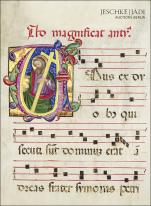 JESCHKE | JÁDI
AUCTIONS BERLIN
magnificat antiꝰ.
Nus ex du
o bꝰ qui
secuti sunt dominum erat a
dreas frater symonis petri